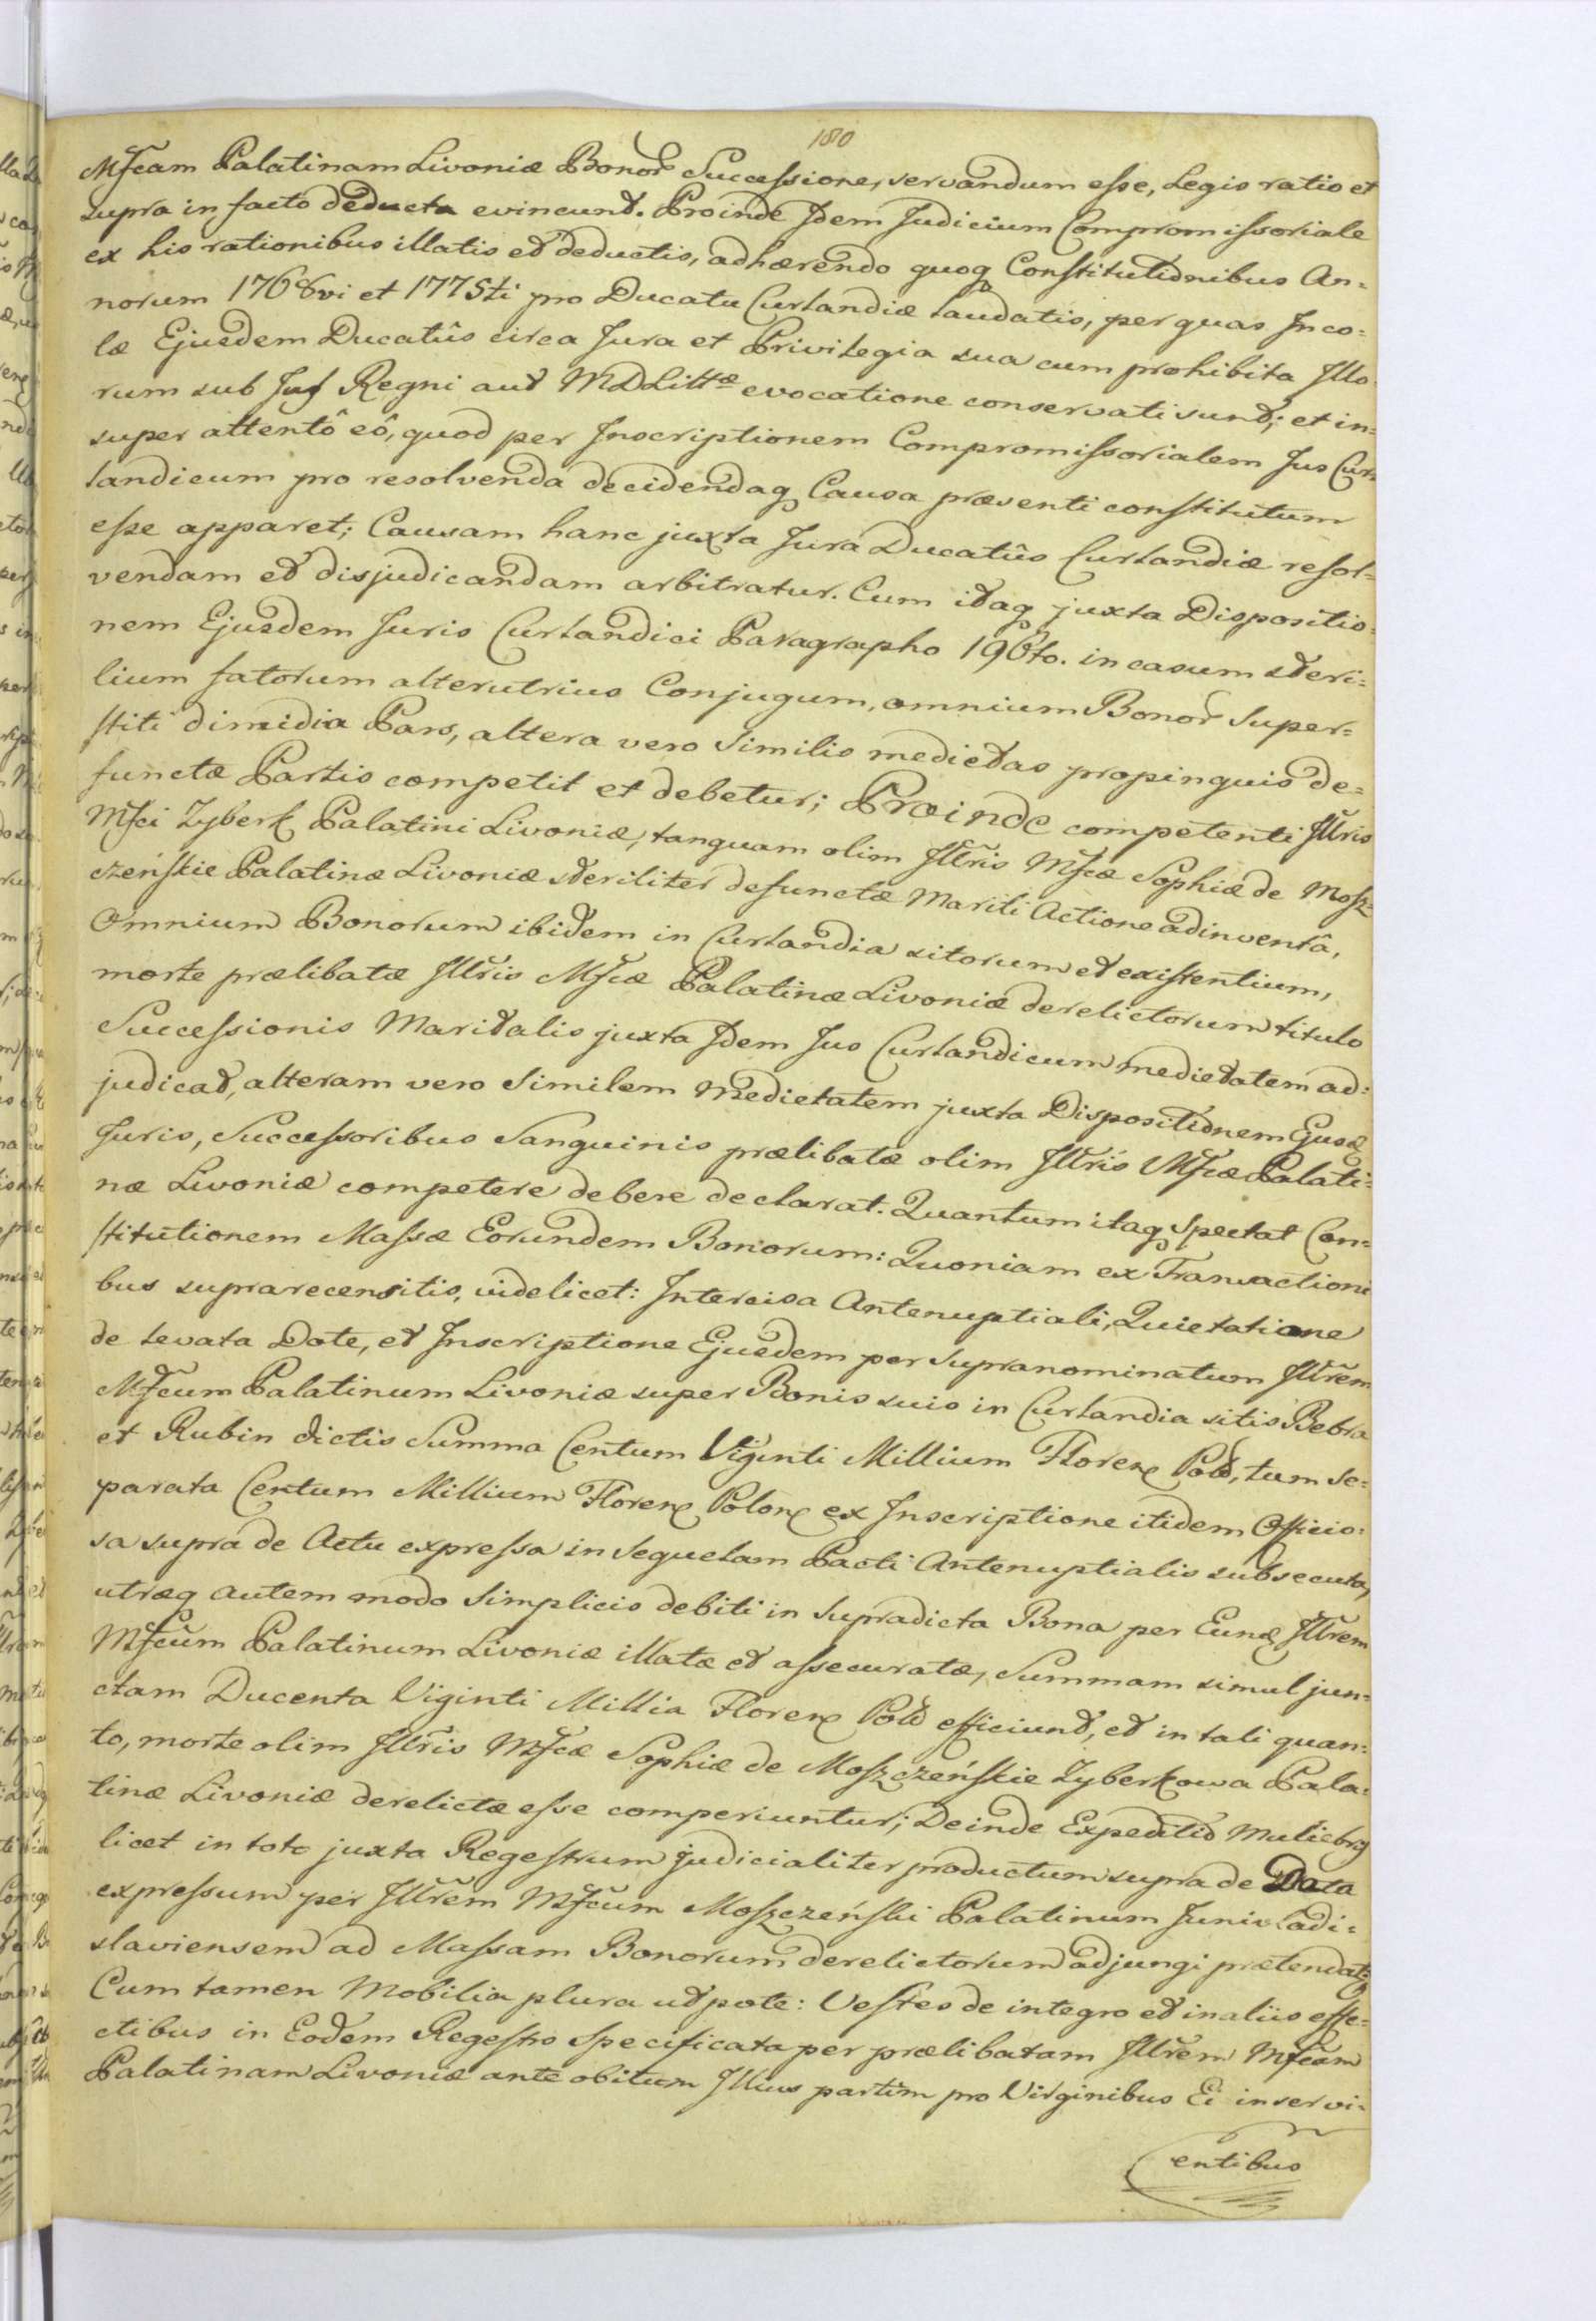 180
Mfcam Palatinam Livoniæ Bonor Successione, servandum esse, Legis ratio et
supra in facto deducta evincunt. Proinde Idem Judicium Compromissoriale
ex his rationibus illatis et deductis, adhærendo quoq Constitutionibus An=
norum 1768vi et 1775ti pro Ducatu Curlandiæ laudatis, per quas Inco=
læ Ejusdem Ducatûs circa Jura et Privilegia sua cum prohibita Illo=
rum sub Jus Regni aut MDLittæ evocatione conservati sunt; et in=
super attentô eô, quod per Inscriptionem Compromissorialem Jus Cur=
landicum pro resolvenda decidendaq Causa præsenti constitutum
esse apparet; Causam hanc juxta Jura Ducatûs Curlandiæ resol=
vendam et disjudicandam arbitratur. Cum itaq juxta Dispositio=
nem Ejusdem Juris Curlandici Paragrapho 196to. in casum steri=
lium fatorum alterutrius Conjugum, omnium Bonor Super=
stiti dimidia Pars, altera vero Similis medietas propinquis de=
functæ Partis competit et debetur; Proinde competenti Illris
Mfci Zyberk Palatini Livoniæ, tanquam olim Illris Mfcæ Sophiæ de Mosz=
czeńskie Palatinæ Livoniæ steriliter defunctæ Mariti Actione adinventâ,
Omnium Bonorum ibidem in Curlandia sitorum et existentium,
morte prælibatæ Illris Mfcæ Palatinæ Livoniæ derelictorum titulo
Successionis Maritalis juxta Idem Jus Curlandicum medietatem ad=
judicat, alteram vero Similem Medietatem juxta Dispositionem Ejusd
Juris, Successoribus Sanguinis prælibatæ olim Illris Mfcæ Palati=
næ Livoniæ competere debere declarat. Quantum itaq Spectat Con=
stitutionem Massæ Eorundem Bonorum: Quoniam ex Transactioni
bus suprarecensitis, videlicet: Intercisa Antenuptiali, Quietatione
de levata Dote, et Inscriptione Ejusdem per Supranominatum Illrem
Mfcum Palatinum Livoniæ super Bonis suis in Curlandia sitis Bebra
et Rubin dictis Summa Centum Viginti Millium Floren Pold, tum Se=
parata Centum Millium Floren Polon ex Inscriptione itidem Officio=
sa supra de Actu expressa in Sequelam Pacti Antenuptialis subsecuta,
utræq autem modo Simplicis debiti in Supradicta Bona per Eund Illrem
Mfcum Palatinum Livoniæ illatæ et assecuratæ, Summam simul jun=
ctam Ducenta Viginti Millia Floren Pold efficiunt, et in tali quan=
to, morte olim Illris Mfcæ Sophiæ de Moszczeńskie Zyberkowa Pala=
tinæ Livoniæ derelictæ esse comperiuntur; Deinde Expeditio Muliebris
licet in toto juxta Regestrum judicialiter productum supra de Data
expressum per Illrem Mfcum Moszczeński Palatinum Junivladi=
slaviensem ad Massam Bonorum derelictorum adjungi prætendatr,
Cum tamen Mobilia plura utpote: Vestes de integro et in aliis effe=
ctibus in Eodem Regestro Specificata per prælibatam Illrem Mfcam
Palatinam Livoniæ ante obitum Illius partim pro Virginibus Ei inservi=
entibus